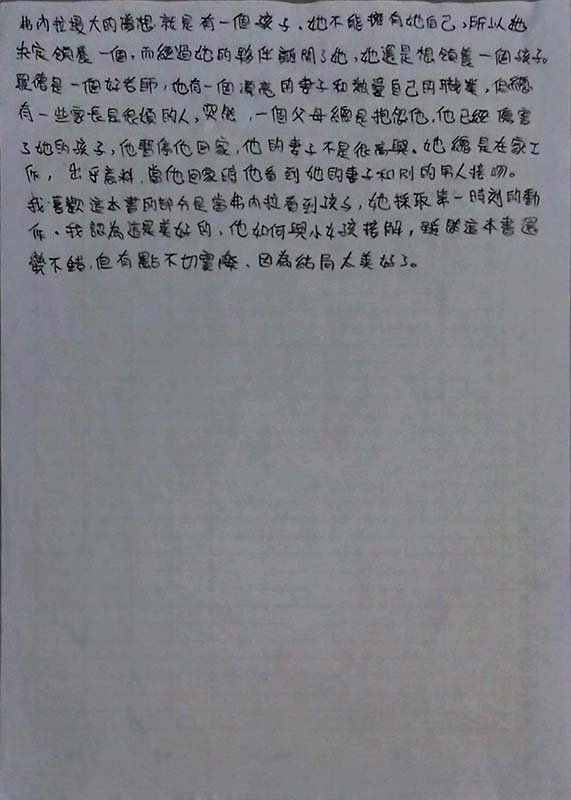 弗內拉最大的夢想就是有一個孩子、她不能擁有她自己,所以她
決定領養一個,而經過她的夥伴離開了她,她還是想領養一個孩子。
羅德是一個好老師,他有一個漂亮的妻子和熱愛自己的職業,但總
有一些家長是很煩的人,突然,一個父母總是抱怨他,他已經傷害
了她的孩子,他暫停他回家,他的妻子不是很高興。她總是在家工
作,出乎意料,當他回家時他看到她的妻子和別的男人接吻。
我喜歡這本書的部分是當弗內拉看到孩子,她採取第一時刻的動
作。我認為這是美好的、他如何與小女孩搭解,雖然這本書還
蠻不錯,但有點不切實際、因為結局太美好了。